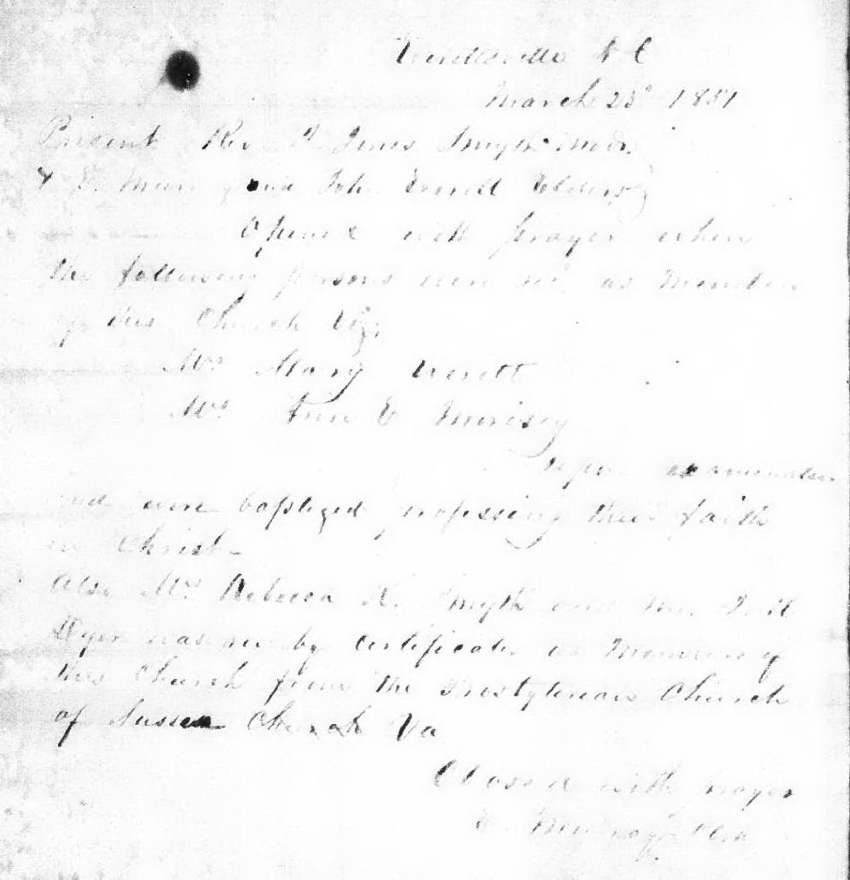 N C
March 23d 1851
Present Rev. Jones Smyth Modr.
& John Everett Elders
Opened with prayer when
the following persons were recd as Members
of this Church Viz;
Mrs Mary Everett
Mrs Ann E
upon examination
and were baptized professing their faith
in Christ-
Also Mrs Rebecca Smyth and
Dyer was by Certificate as Members of
this Church from the Presbyterian Church
of Sussex Church Va
Closed with prayer
E.